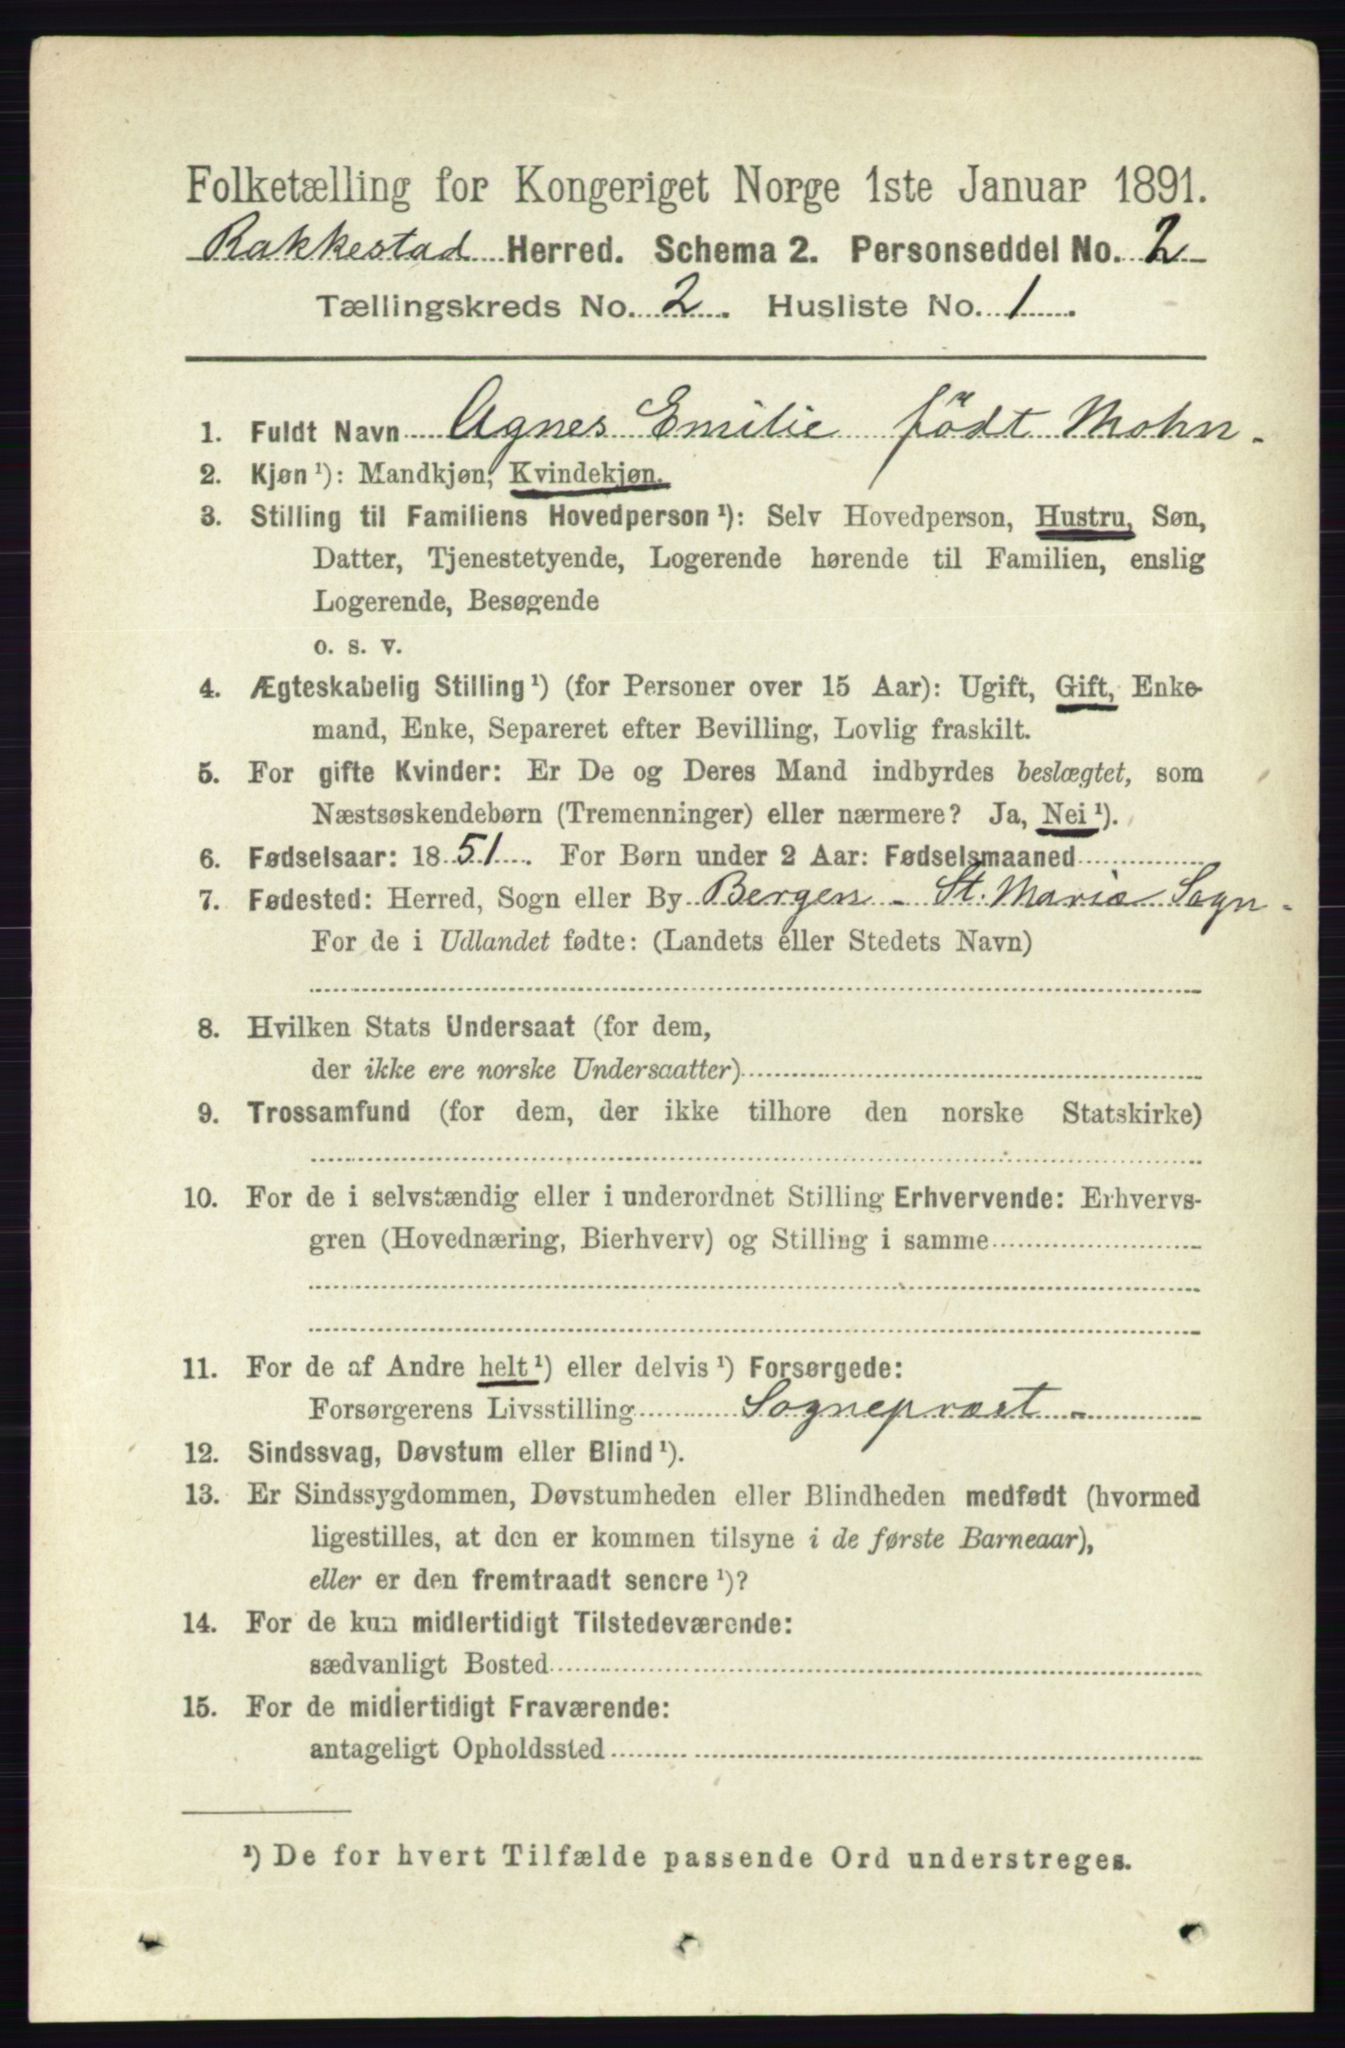 Folketælling for Kongeriget Norge 1ste Januar 1891.
Rakkestad Herred. Schema 2. Personseddel No. 2
Tællingskreds No. 2. Husliste No. 1.
1. Fuldt Navn Agnes Emilie födt Mohn.
2. Kjøn ¹): Mandkjøn, Kvindekjøn.
3. Stilling til Familiens Hovedperson ¹): Selv Hovedperson, Hustru, Søn,
Datter, Tjenestetyende, Logerende hørende til Familien, enslig
Logerende, Besøgende
o. s. v.
4. Ægteskabelig Stilling ¹) (for Personer over 15 Aar): Ugift, Gift, Enke-
mand, Enke, Separeret efter Bevilling, Lovlig fraskilt.
5. For gifte Kvinder: Er De og Deres Mand indbyrdes beslægtet, som
Næstsøskendebørn (Tremenninger) eller nærmere? Ja, Nei ¹).
6. Fødselsaar: 1851. For Børn under 2 Aar: Fødselsmaaned
7. Fødested: Herred, Sogn eller By Bergen - St. Maria Sogn.
For de i Udlandet fødte: (Landets eller Stedets Navn)
8. Hvilken Stats Undersaat (for dem,
der ikke ere norske Undersaatter)
9. Trossamfund (for dem, der ikke tilhore den norske Statskirke)
10. For de i selvstændig eller i underordnet Stilling Erhvervende: Erhvervs-
gren (Hovednæring, Bierhverv) og Stilling i samme
11. For de af Andre helt ¹) eller delvis ¹) Forsørgede:
Forsørgerens Livsstilling Sognepræst -
12. Sindssvag, Døvstum eller Blind ¹).
13. Er Sindssygdommen, Døvstumheden eller Blindheden medfødt (hvormed
ligestilles, at den er kommen tilsyne i de første Barneaar),
eller er den fremtraadt senere ¹)?
14. For de kun midlertidigt Tilstedeværende:
sædvanligt Bosted
15. For de midlertidigt Fraværende:
antageligt Opholdssted
¹) De for hvert Tilfælde passende Ord understreges.